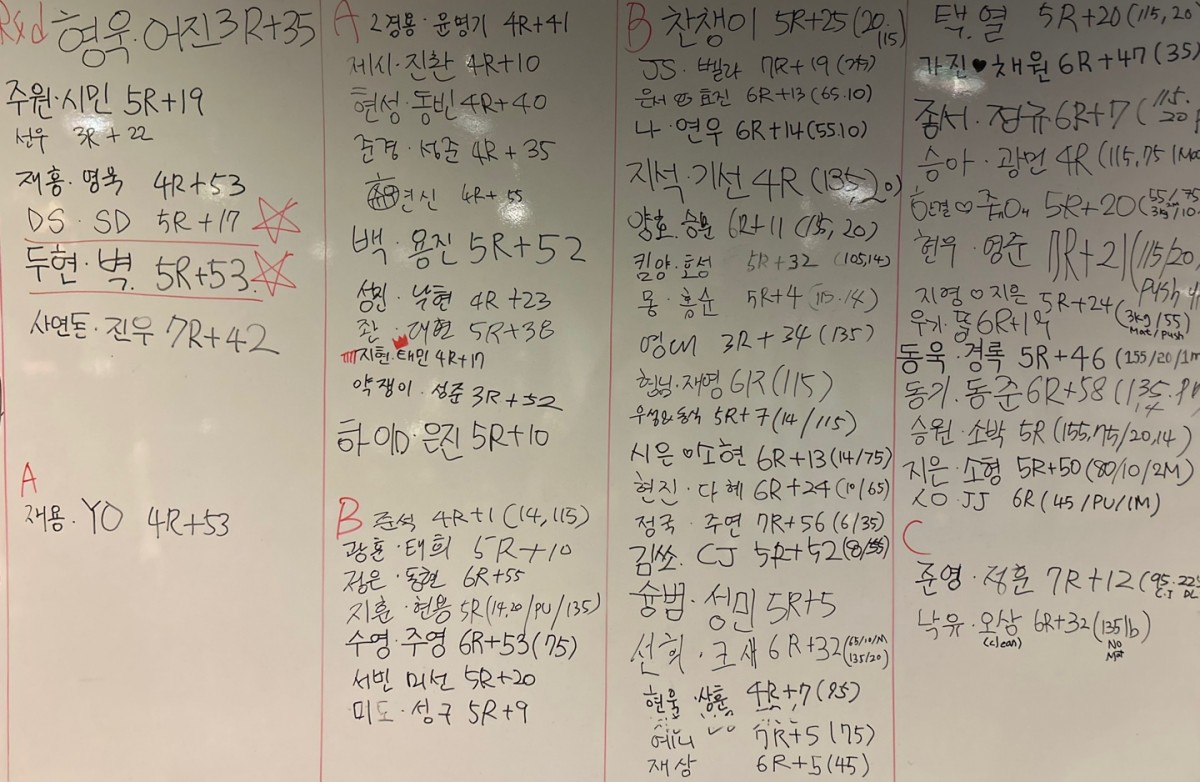 Rxd 형욱.어진 3R+35
주원·시민 5R+19
선우 3R+22
재홍·명욱 4R+53
DS·SD 5R+17
두현·벽. 5R+53
사연돈·진우 7R+42
A
재용·YO 4R+53
A 2경용·윤명기 4R+41
제시·진환 4R+10
현성·동빈 4R+40
준경·성준 4R+35
연신 4R+55
백·용진 5R+52
성원·낙현 4R+23
존·대현 5R+38
지현·태민 4R+17
약쟁이·성준 3R+52
하이D·은진 5R+10
B 준석 4R+1 (14,115)
광훈·태희 5R+10
정은·동현 6R+55
지훈·현용 5R(14.20/PU/135)
수영·주영 6R+53(75)
서빈 미선 5R+20
미도·성구 5R+9
B 찬쟁이 5R+25(20.115)
JS·벨라 7R+19
은서 효진 6R+13(65.10)
나·연우 6R+14(55.10)
지석·기선 4R (135,20)
양호.승문 6R+11 (135,20)
킴양·효섬 5R+32 (105,14)
몽·홍순 5R+4 (115.14)
영대 3R+34 (135)
형님·재영 6R(115)
우성&동식 5R+7(14/115)
시은♥소현 6R+13(14/75)
현진·다혜 6R+24(10/65)
정국·주연 7R+56(6/35)
김쏘. CJ 5R+52(8/55)
슝범·성민 5R+5
선희·크새 6R+32(65/10/M 135/20)
현울·상훈 4R+7(95)
예니 7R+5(75)
재상 6R+5(45)
택.열 5R+20(115,20)
가진♥채원 6R+47(35)
종서·정규 6R+7(115.20
승아·광면 4R(115,75 1Ma
5R+20(55
3kg/10
현우·영준 7R+21(115/20/
push
지영♡지은 5R+24(3kg/55)
Mat/push
우기·뚱 6R+1
동욱·경록 5R+46(155/20/1m
동기.동준 6R+58(135.
14
승원·소박 5R(155,75/20,14)
지은·소형 5R+50(80/10/2M)
JJ 6R(45/PU/1M)
C
준영·정훈 7R+12(95.225
C.J DL
낙유·오상 6R+32(135lb)
(clean) No
Mat